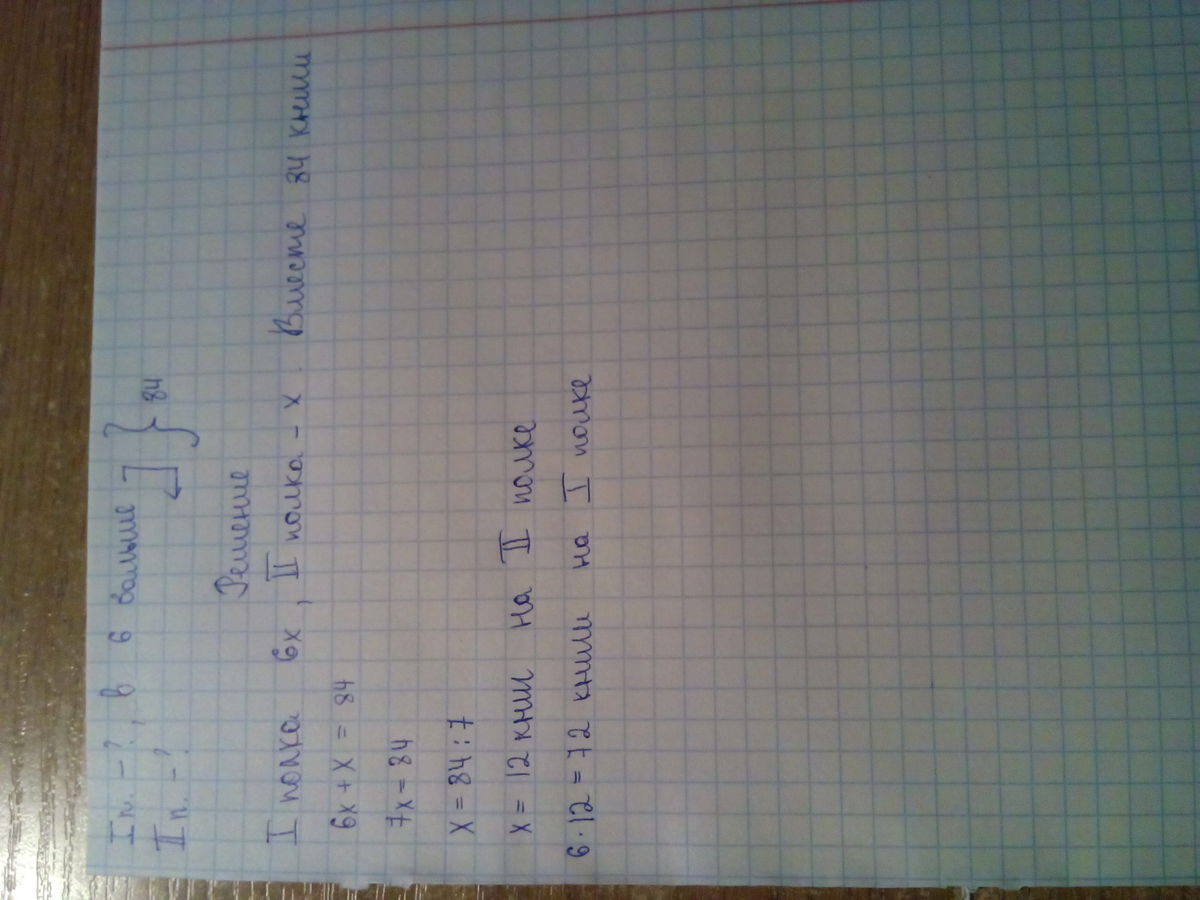 I п. - ?, в 6 больше
II п. - ?
} 84
Решение
I полка 6x, II полка - x. Вместе 84 книги
6x + x = 84
7x = 84
x = 84 : 7
x = 12 книг на II полке
6 · 12 = 72 книги на I полке